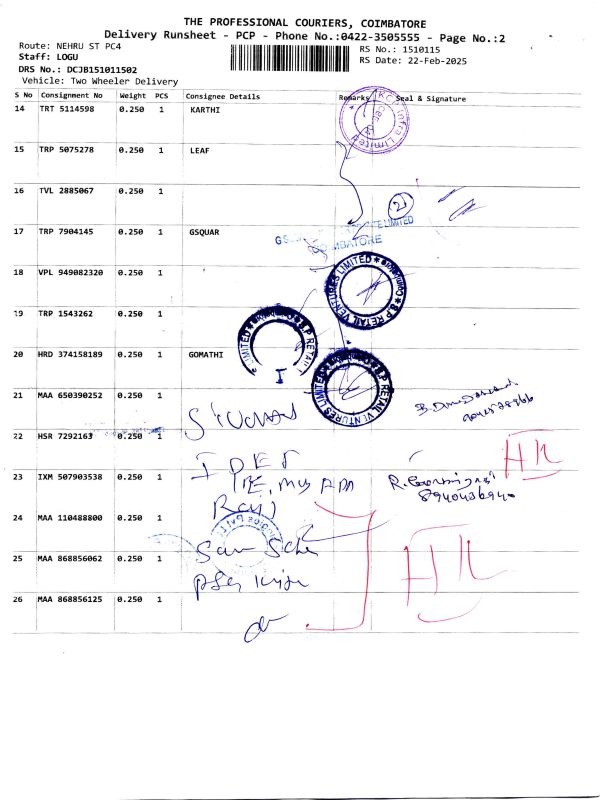 THE PROFESSIONAL COURIERS, COIMBATORE
Delivery Runsheet - PCP - Phone No.:0422-3505555 - Page No.:2
Route: NEHRU ST PC4
Staff: LOGU
DRS No.: DCJB151011502
Vehicle: Two Wheeler Delivery
RS No.: 1510115
RS Date: 22-Feb-2025
S No Consignment No Weight PCS Consignee Details Remarks Seal & Signature
14 TRT 5114598 0.250 1 KARTHI
Infra Limited
15 TRP 5075278 0.250 1 LEAF
16 TVL 2885067 0.250 1
2
17 TRP 7904145 0.250 1 GSQUAR
LIMITED
COIMBATORE
18 VPL 949082320 0.250 1
S.P RETAIL VENTURES LIMITED
19 TRP 1543262 0.250 1
S.P RETAIL LIMITED
I
20 HRD 374158189 0.250 1 GOMATHI
S.P RETAIL VENTURES LIMITED
21 MAA 650390252 0.250 1
22 HSR 7292163 0.250 1
HR
23 IXM 507903538 0.250 1
8940436940
24 MAA 110488800 0.250 1
25 MAA 868856062 0.250 1
HR
26 MAA 868856125 0.250 1